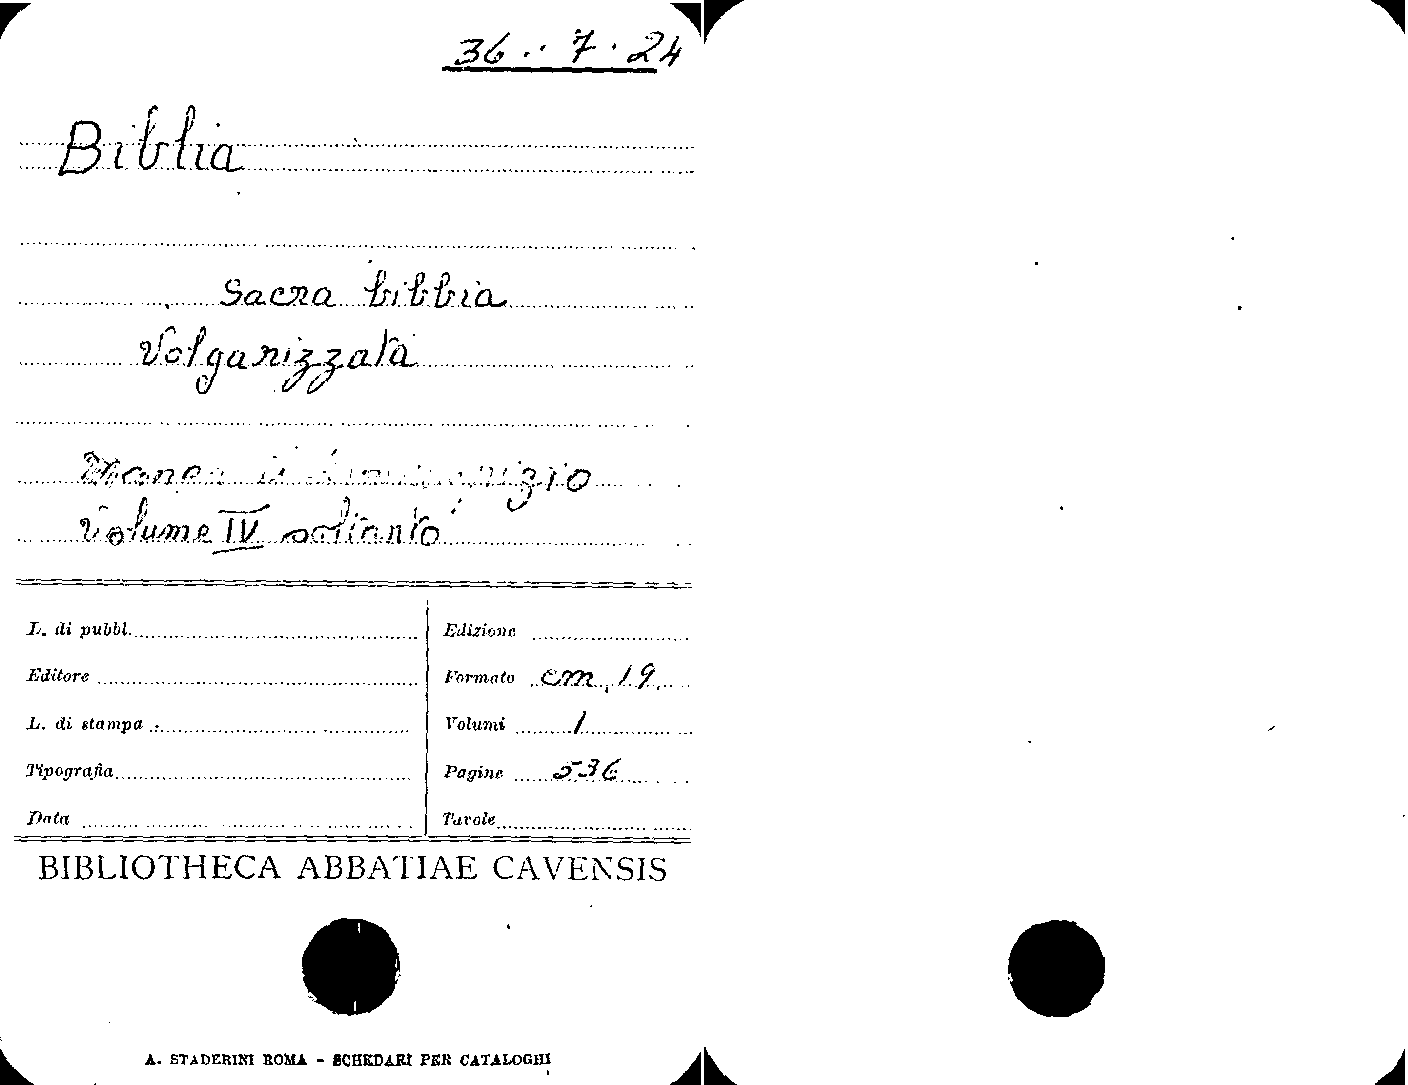 36 . . 7 . 24
Biblia
Sacra bibbia
Volgarizzata
Manca il
Volume IV soltanto
L. di pubbl.
Edizione
Editore
Formato cm, 19.
L. di stampa
Volumi 1
Tipografia
Pagine 536
Data
Tavole
BIBLIOTHECA ABBATIAE CAVENSIS
A. STADERINI ROMA - SCHEDARI PER CATALOGHI